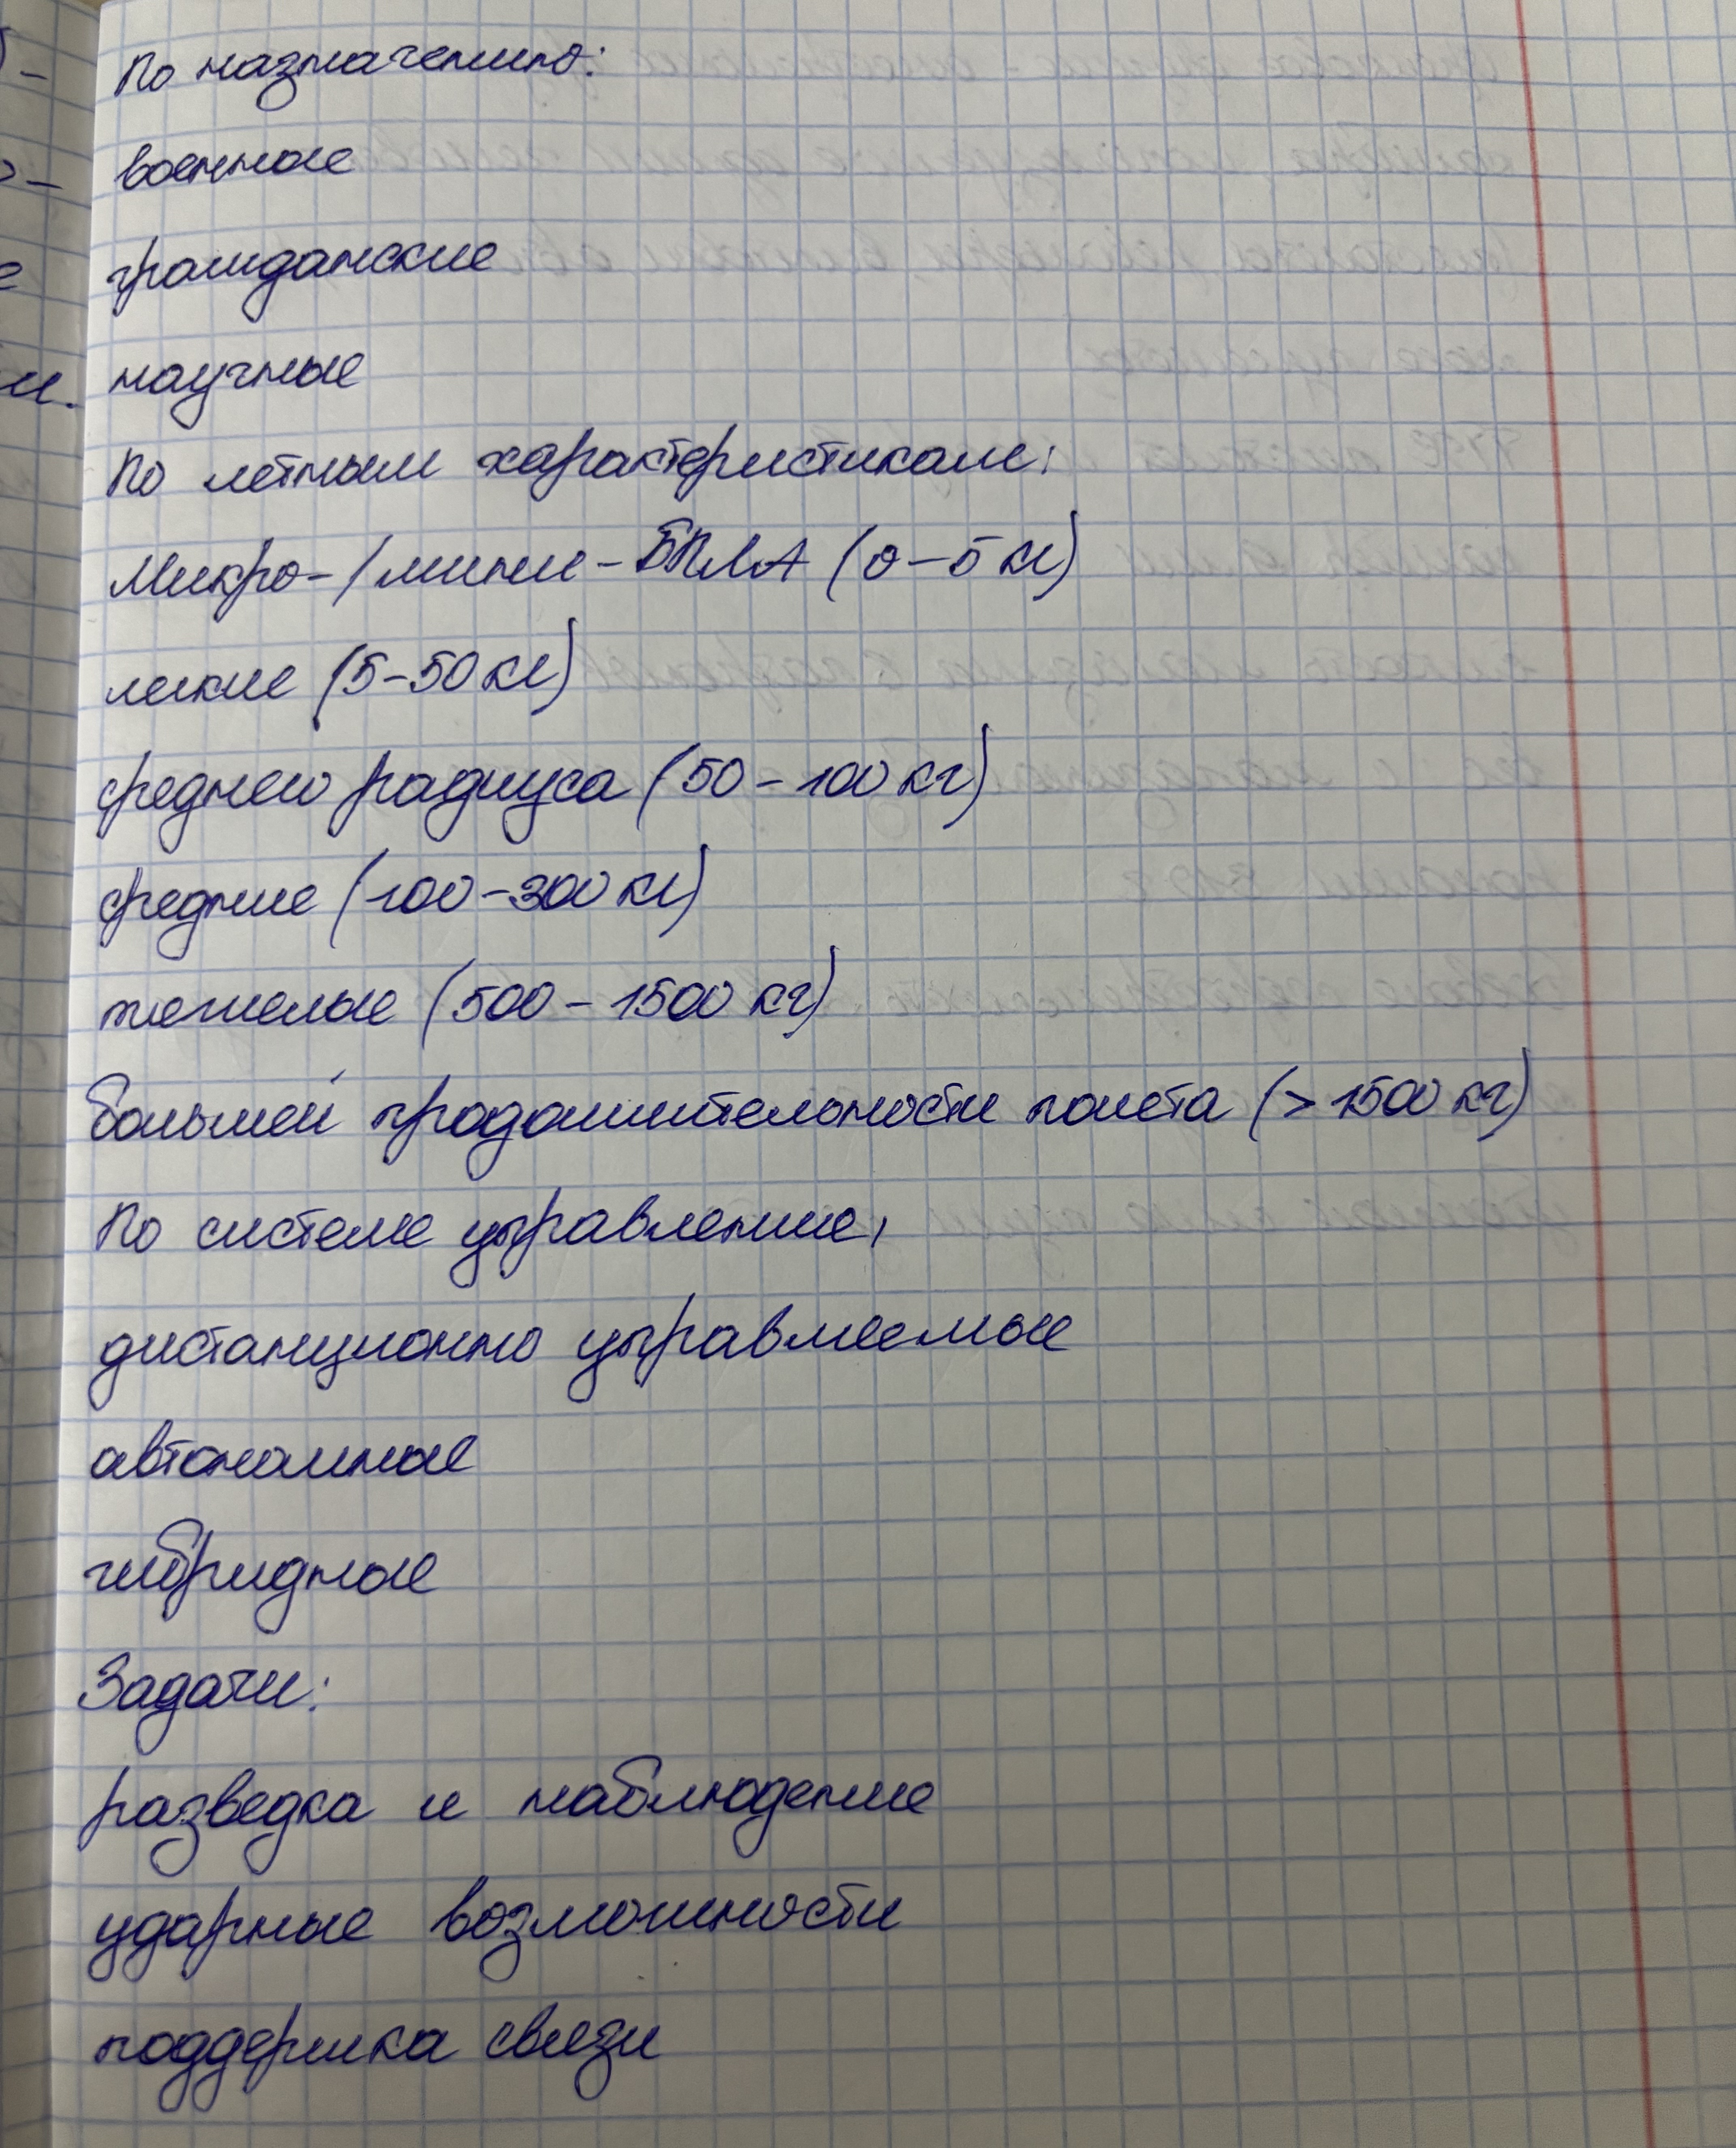 По назначению:
военные
гражданские
научные
По летным характеристикам:
Микро-/мини-БПЛА (0-5 кг)
легкие (5-50 кг)
среднего радиуса (50-100 кг)
средние (100-300 кг)
тяжелые (500-1500 кг)
большей продолжительности полета (>1500 кг)
По системе управления:
дистанционно управляемые
автономные
гибридные
Задачи:
разведка и наблюдение
ударные возможности
поддержка связи